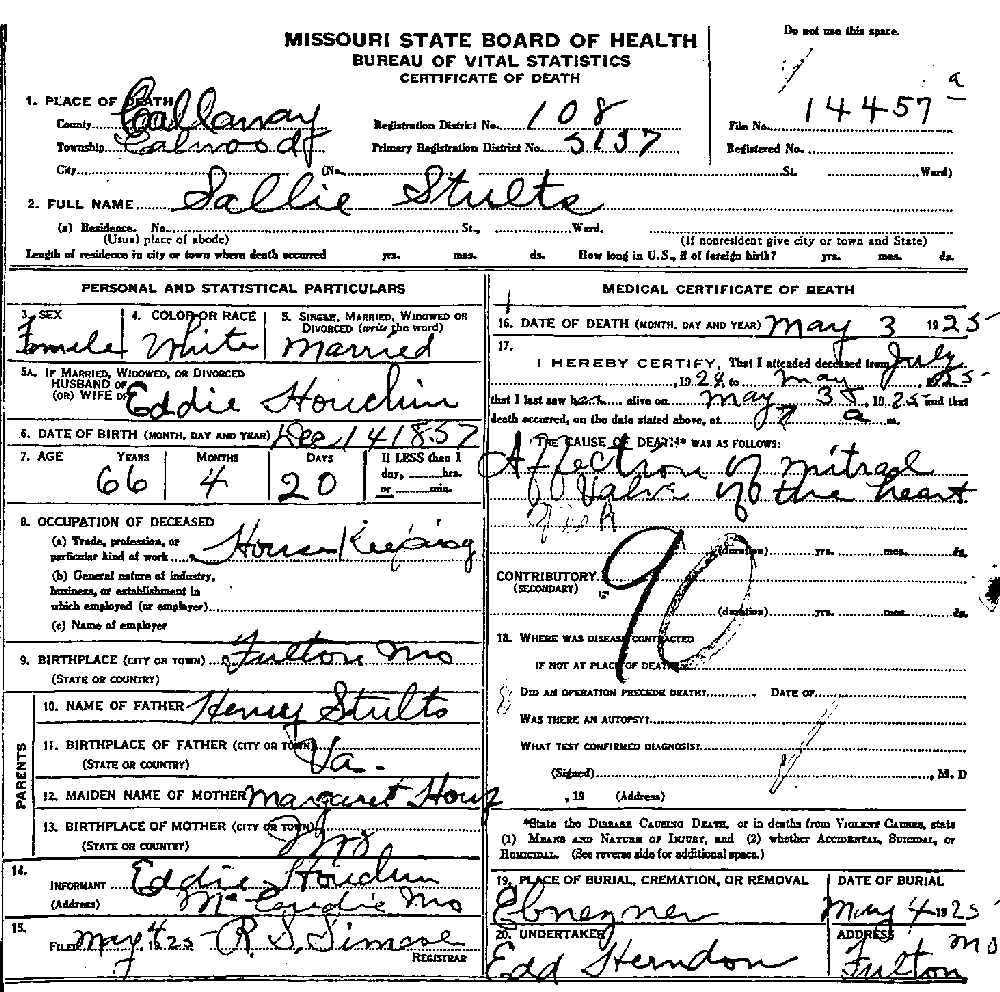 Do not use this space.
MISSOURI STATE BOARD OF HEALTH
BUREAU OF VITAL STATISTICS
CERTIFICATE OF DEATH
1. PLACE OF DEATH
County Callaway Registration District No. 108 File No. 14457 a
Township Calwood Primary Registration District No. 5137 Registered No.
City (No. St. Ward)
2. FULL NAME Sallie Stults
(a) Residence. No. St., Ward.
(Usual place of abode) (If nonresident give city or town and State)
Length of residence in city or town where death occurred yrs. mos. ds. How long in U.S., if of foreign birth? yrs. mos. ds.
PERSONAL AND STATISTICAL PARTICULARS
3. SEX 4. COLOR OR RACE 5. SINGLE, MARRIED, WIDOWED OR
DIVORCED (write the word)
Female White Married
5A. IF MARRIED, WIDOWED, OR DIVORCED
HUSBAND OF
(OR) WIFE OF Eddie Houchin
6. DATE OF BIRTH (MONTH, DAY AND YEAR) Dec 14 1857
7. AGE YEARS MONTHS DAYS If LESS than 1
day, hrs.
or min.
66 4 20
8. OCCUPATION OF DECEASED
(a) Trade, profession, or
particular kind of work House Keeping
(b) General nature of industry,
business, or establishment in
which employed (or employer)
(c) Name of employer
9. BIRTHPLACE (CITY OR TOWN) Fulton Mo
(STATE OR COUNTRY)
PARENTS
10. NAME OF FATHER Henry Stults
11. BIRTHPLACE OF FATHER (CITY OR TOWN)
(STATE OR COUNTRY) Va.
12. MAIDEN NAME OF MOTHER Margaret
13. BIRTHPLACE OF MOTHER (CITY OR TOWN)
(STATE OR COUNTRY) Mo
14.
INFORMANT Eddie Houchin
(Address) Mc Credie Mo
15.
FILED May 4 1925 R. S.
REGISTRAR
MEDICAL CERTIFICATE OF DEATH
16. DATE OF DEATH (MONTH, DAY AND YEAR) May 3 1925
17.
I HEREBY CERTIFY, That I attended deceased from July
, 1924 to May 1925
that I last saw h alive on May 3, 1925 and that
death occurred, on the date stated above, at 7 a m.
THE CAUSE OF DEATH* WAS AS FOLLOWS:
Affection of mitral
Valve of the heart
90
(duration) yrs. mos. ds.
CONTRIBUTORY
(SECONDARY)
(duration) yrs. mos. ds.
18. WHERE WAS DISEASE CONTRACTED
IF NOT AT PLACE OF DEATH?
DID AN OPERATION PRECEDE DEATH? DATE OF
WAS THERE AN AUTOPSY?
WHAT TEST CONFIRMED DIAGNOSIS?
(Signed) , M. D
, 19 (Address)
*State the DISEASE CAUSING DEATH, or in deaths from VIOLENT CAUSES, state
(1) MEANS AND NATURE OF INJURY, and (2) whether ACCIDENTAL, SUICIDAL, or
HOMICIDAL. (See reverse side for additional space.)
19. PLACE OF BURIAL, CREMATION, OR REMOVAL DATE OF BURIAL
May 4 1925
20. UNDERTAKER ADDRESS
Edd Herndon Fulton Mo